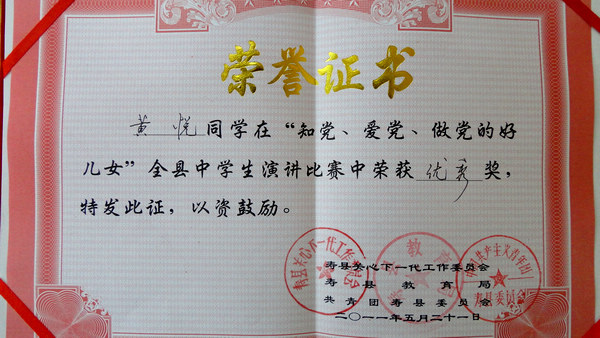 荣誉证书
黄悦同学在“知党、爱党、做党的好
儿女”全县中学生演讲比赛中荣获优秀奖，
特发此证，以资鼓励。
寿县关心下一代工作委员会
寿县教育局
共青团寿县委员会
二〇一一年五月二十一日